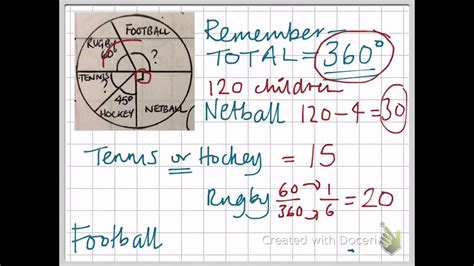 FOOTBALL
RUGBY
60°
?
TENNIS
?
45°
HOCKEY
NETBALL
Remember
TOTAL = 360°
120 children
Netball 120-4=30
Tennis or Hockey = 15
Rugby 60/360 → 1/6 = 20
Football
Created with Doceri